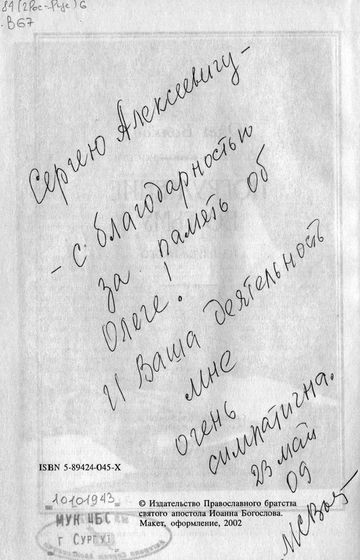 84(2Рос-Рус)6
В67
Сергею Алексеевичу -
- с благодарностью
за память об
Олеге!
И Ваша деятельность
мне
очень
симпатична.
23 май
09
ISBN 5-89424-045-X
10101943
© Издательство Православного братства
святого апостола Иоанна Богослова.
Макет, оформление, 2002
МУК ЦБС
г Сургут